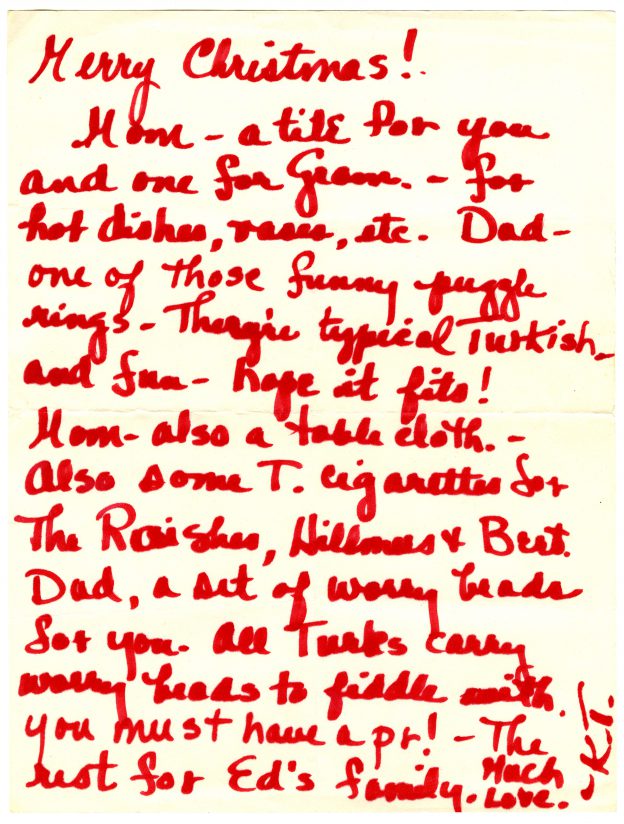 Merry Christmas!
Mom - a tile for you
and one for Gram. - for
hot dishes, vases, etc. Dad -
one of those funny puzzle
rings - They're typical Turkish -
and fun - hope it fits!
Mom - also a table cloth. -
Also some T. cigarettes for
The Raishes, & Bert.
Dad, a set of worry beads
for you. All Turks carry
worry beads to fiddle with.
you must have a pr! - The
rest for Ed's family.
Much
Love.
- K.T.